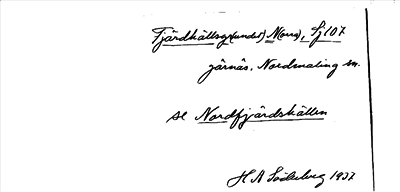 Fjärdhällsgr(undet) N(orra), Sj 107
Järnäs, Nordmaling sn.
se Nordfjärdshällen
H A Söderberg 1937